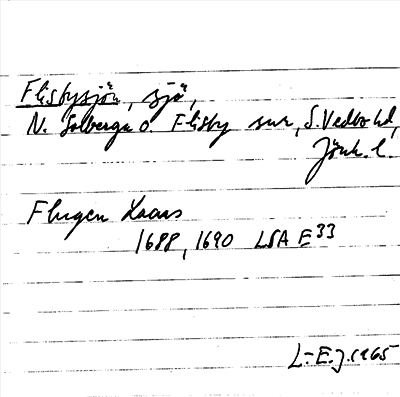 Flisbysjön, sjö,
N. Solberga o. Flisby snr, S. Vedbo hd,
Jönk. l.
Flugen Laars
1688, 1690 LSA E33
L-E.J. 1965